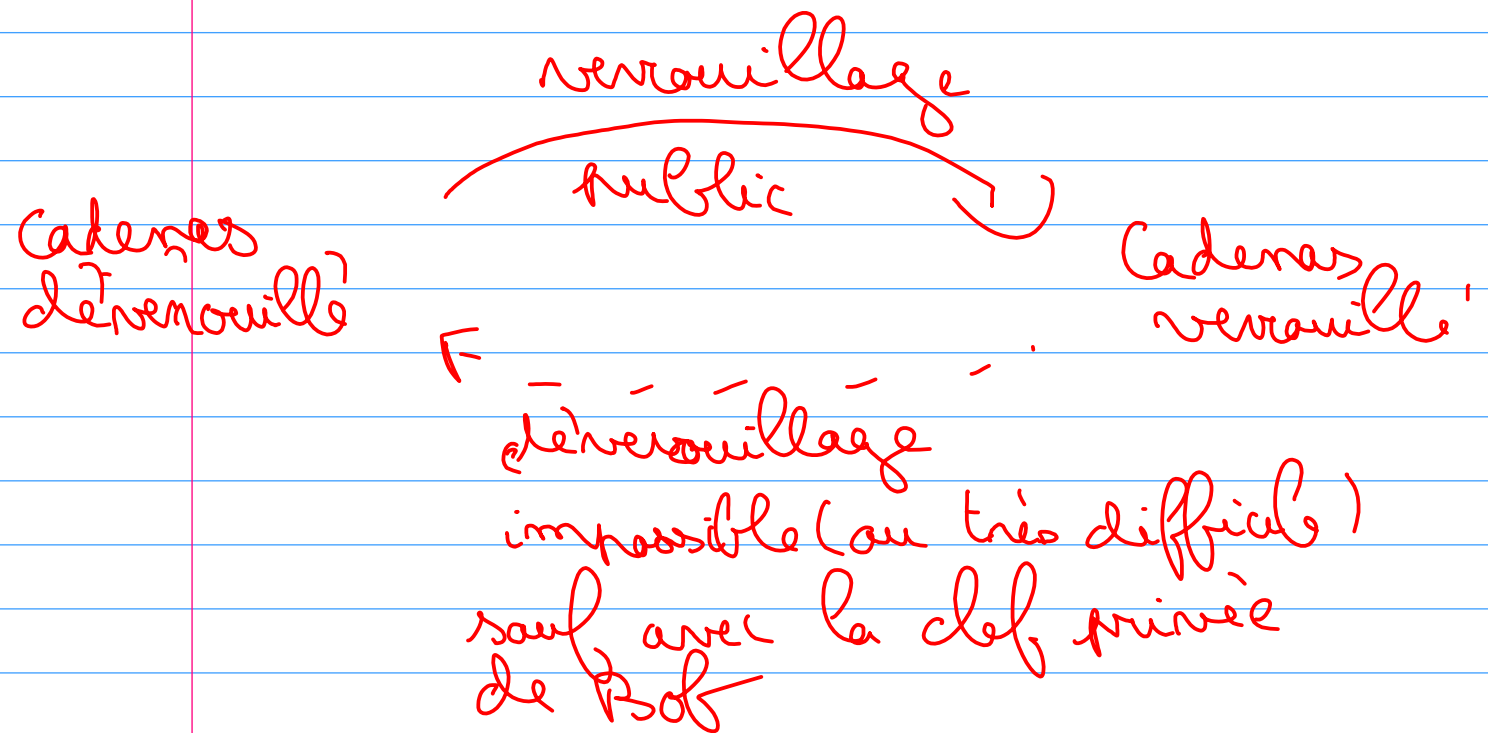 verrouillage
public
Cadenas
déverrouillé
Cadenas
verrouillé
déverouillage
impossible (ou très difficile)
sauf avec la clef privée
de Bob